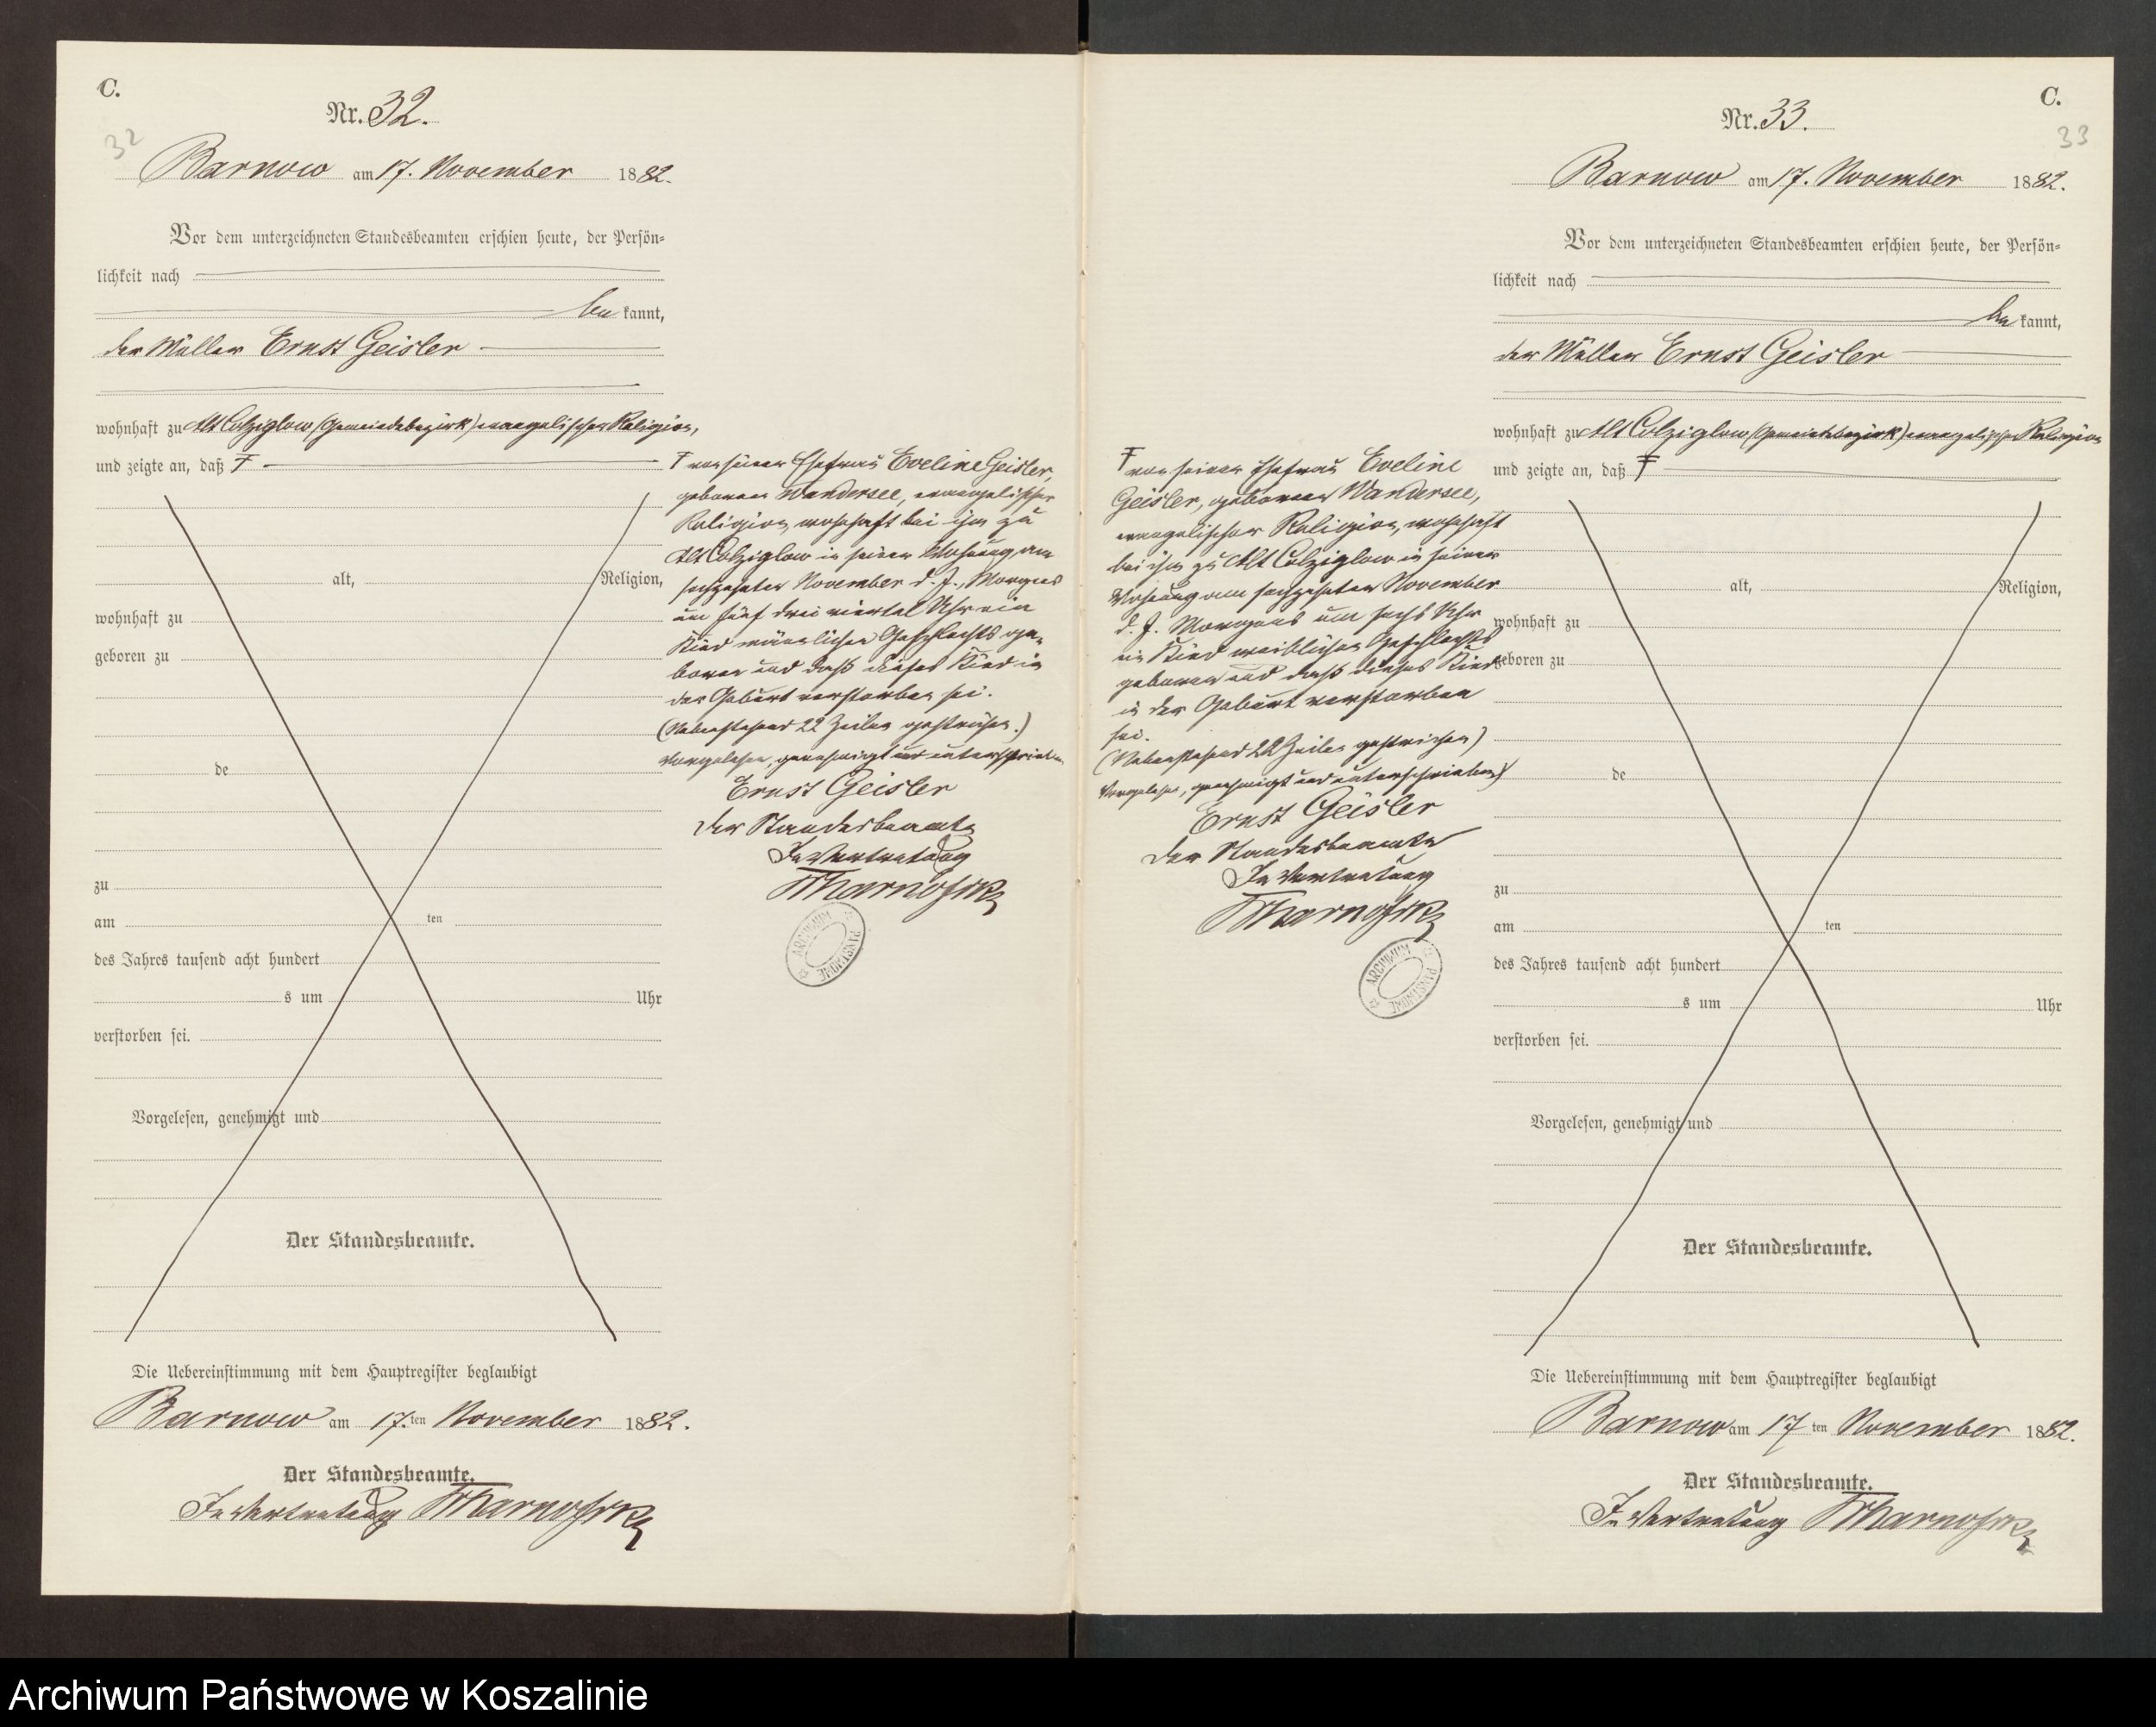 C.
Nr. 32.
32
Barnow am 17. November 1882.
Vor dem unterzeichneten Standesbeamten erschien heute, der Persön-
lichkeit nach
be kannt,
der Müller Ernst Geisler
wohnhaft zu Alt Colziglow (Gemeindebezirk) evangelischer Religion,
und zeigte an, daß Ŧ
Ŧ von seiner Ehefrau Eveline Geisler,
geborenen Wandersee, evangelischer
Religion, wohnhaft bei ihm zu
Alt Colziglow in seiner Wohnung am
sechzehnten November d. J., Morgens
um fünf drei viertel Uhr ein
Kind männlichen Geschlechts ge-
boren und daß dieses Kind in
der Geburt verstorben sei.
(Nebenstehend 22 Zeilen gestrichen.)
Vorgelesen, genehmigt und unterschrieben
Ernst Geisler
Der Standesbeamte
In Vertretung
alt, Religion,
wohnhaft zu
geboren zu
de
zu
am ten
des Jahres tausend acht hundert
s um Uhr
verstorben sei.
Vorgelesen, genehmigt und
Der Standesbeamte.
Die Uebereinstimmung mit dem Hauptregister beglaubigt
Barnow am 17. ten November 1882.
Der Standesbeamte.
In Vertretung
ARCHIWUM PAŃSTWOWE
C.
Nr. 33.
33
Barnow am 17. November 1882.
Vor dem unterzeichneten Standesbeamten erschien heute, der Persön-
lichkeit nach
be kannt,
der Müller Ernst Geisler
wohnhaft zu Alt Colziglow (Gemeindebezirk) evangelischer Religion
und zeigte an, daß Ŧ
Ŧ von seiner Ehefrau Eveline
Geisler, geborenen Wandersee,
evangelischer Religion, wohnhaft
bei ihm zu Alt Colziglow in seiner
Wohnung am sechzehnten November
d. J. Morgens um sechs Uhr
ein Kind weiblichen Geschlechts
geboren und daß dieses Kind
in der Geburt verstorben
sei.
(Nebenstehend 22 Zeilen gestrichen)
Vorgelesen, genehmigt und unterschrieben
Ernst Geisler
Der Standesbeamte
In Vertretung
ARCHIWUM PAŃSTWOWE
alt, Religion,
wohnhaft zu
geboren zu
de
zu
am ten
des Jahres tausend acht hundert
s um Uhr
verstorben sei.
Vorgelesen, genehmigt und
Der Standesbeamte.
Die Uebereinstimmung mit dem Hauptregister beglaubigt
Barnow am 17 ten November 1882.
Der Standesbeamte.
In Vertretung
Archiwum Państwowe w Koszalinie